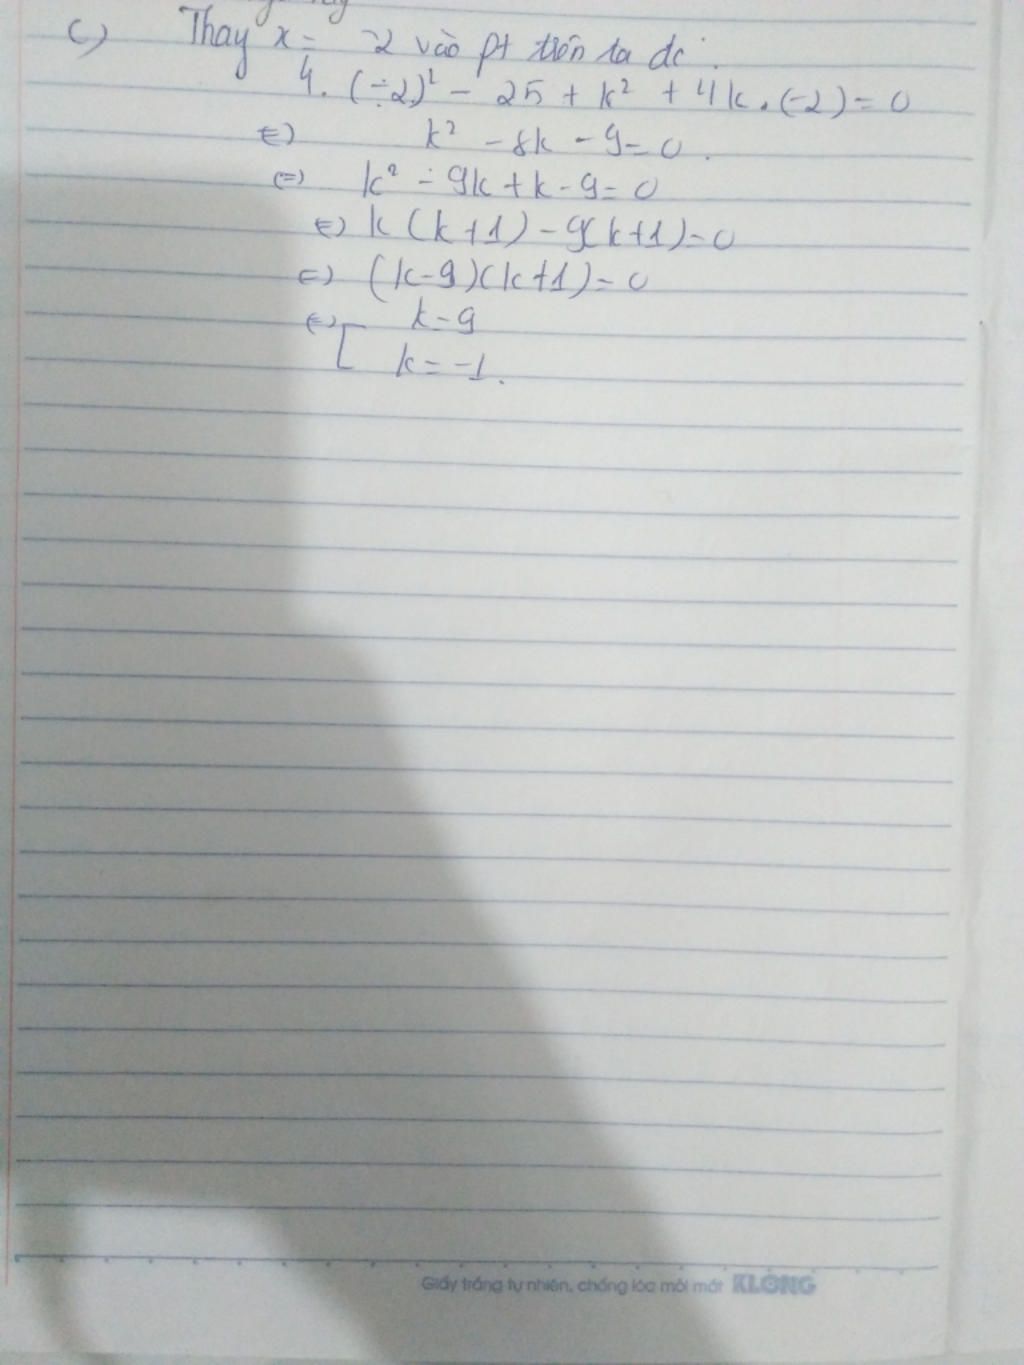 c) Thay x = -2 vào pt trên ta dc:
4. (-2)² - 25 + k² + 4k . (-2) = 0
⇔ k² - 8k - 9 = 0.
⇔ k² - 9k + k - 9 = 0
⇔ k (k+1) - 9(k+1) = 0
⇔ (k-9)(k+1) = 0
⇔ [ k = 9
k = -1.
Giấy trắng tự nhiên, chống lóa mỏi mắt KLONG